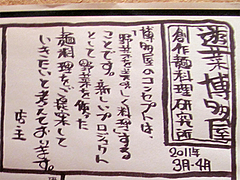 遊菜博多屋
創作麺料理研究所
2011年
3月・4月
博多屋のコンセプトは、
野菜を美味しく料理する
ことです。新しいプロジェクト
として野菜を使った
麺料理をご提案して
いきたいと考えております。
店主